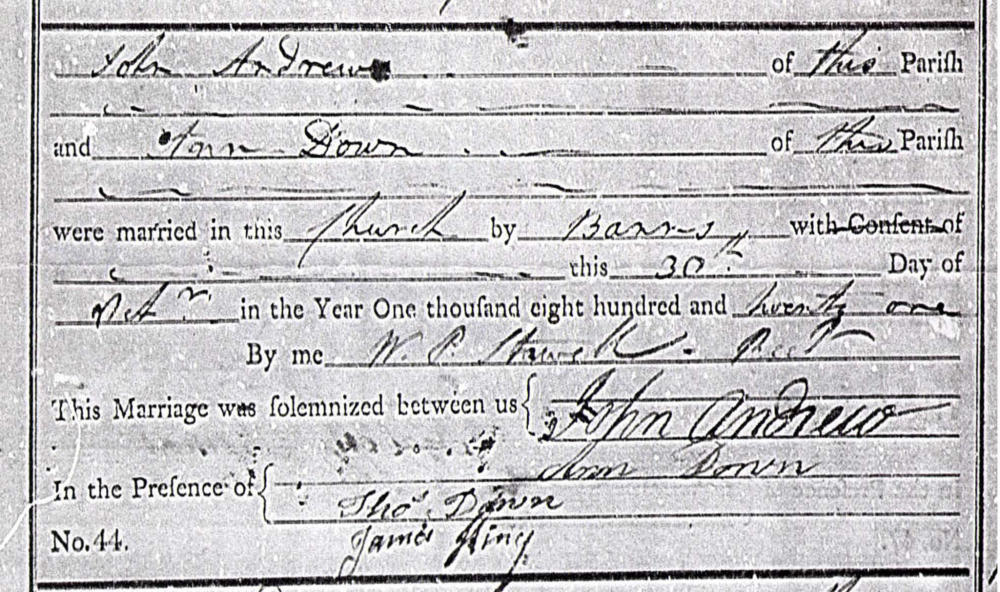 John Andrew of this Pariſh
and Ann Down of this Pariſh
were married in this Church by Banns with Conſent of
this 30th Day of
Octr in the Year One thouſand eight hundred and twenty one
By me W. P. Stawell Rectr
This Marriage was ſolemnized between us John Andrew
Ann Down
In the Preſence of
Thos Down
No. 44. James King